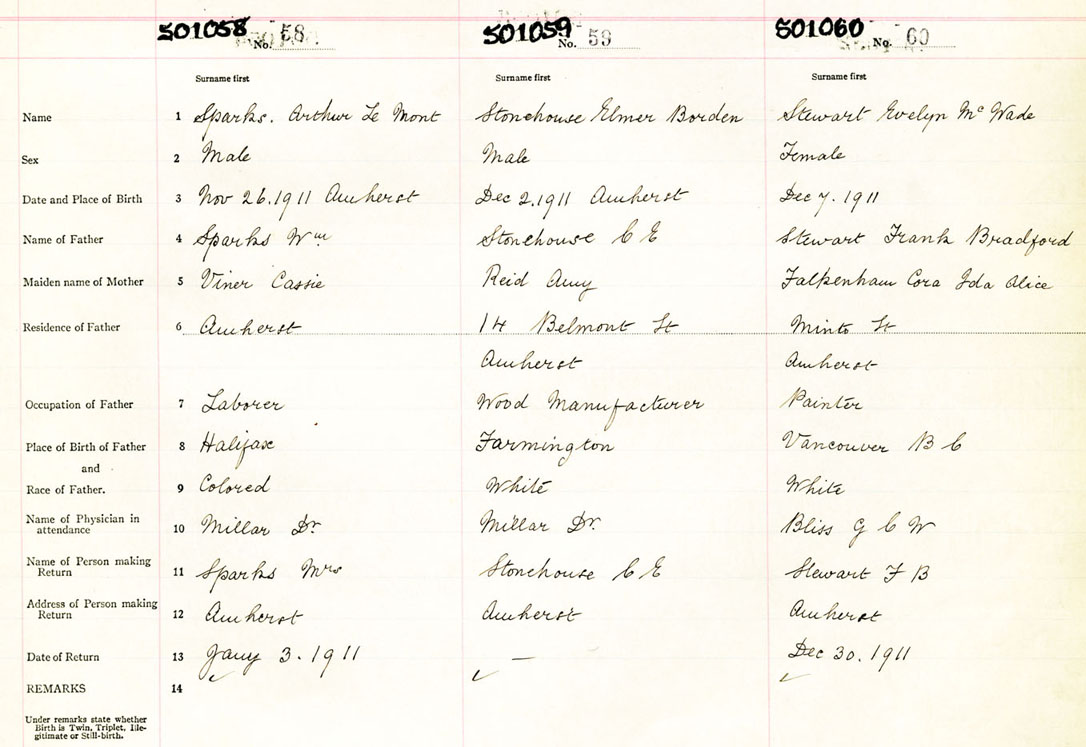 501058 No. 58 501059 No. 59 501060 No. 60
Surname first Surname first Surname first
Name 1 Sparks. Arthur Le Mont Stonehouse Elmer Borden Stewart Evelyn Mc Wade
Sex 2 Male Male Female
Date and Place of Birth 3 Nov 26.1911 Amherst Dec 2.1911 Amherst Dec 7. 1911
Name of Father 4 Sparks Wm Stonehouse C E Stewart Frank Bradford
Maiden name of Mother 5 Viner Cassie Reid Amy Falkenham Cora Ida Alice
Residence of Father 6 Amherst 14 Belmont St Minto St
Amherst Amherst
Occupation of Father 7 Laborer Wood Manufacturer Painter
Place of Birth of Father 8 Halifax Farmington Vancouver B C
and
Race of Father. 9 Colored White White
Name of Physician in
attendance 10 Millar Dr. Millar Dr. Bliss G C W
Name of Person making
Return 11 Sparks Mrs Stonehouse C E Stewart F B
Address of Person making
Return 12 Amherst Amherst Amherst
Date of Return 13 Jany 3. 1911 — Dec 30. 1911
REMARKS 14
Under remarks state whether
Birth is Twin, Triplet, Ille-
gitimate or Still-birth.